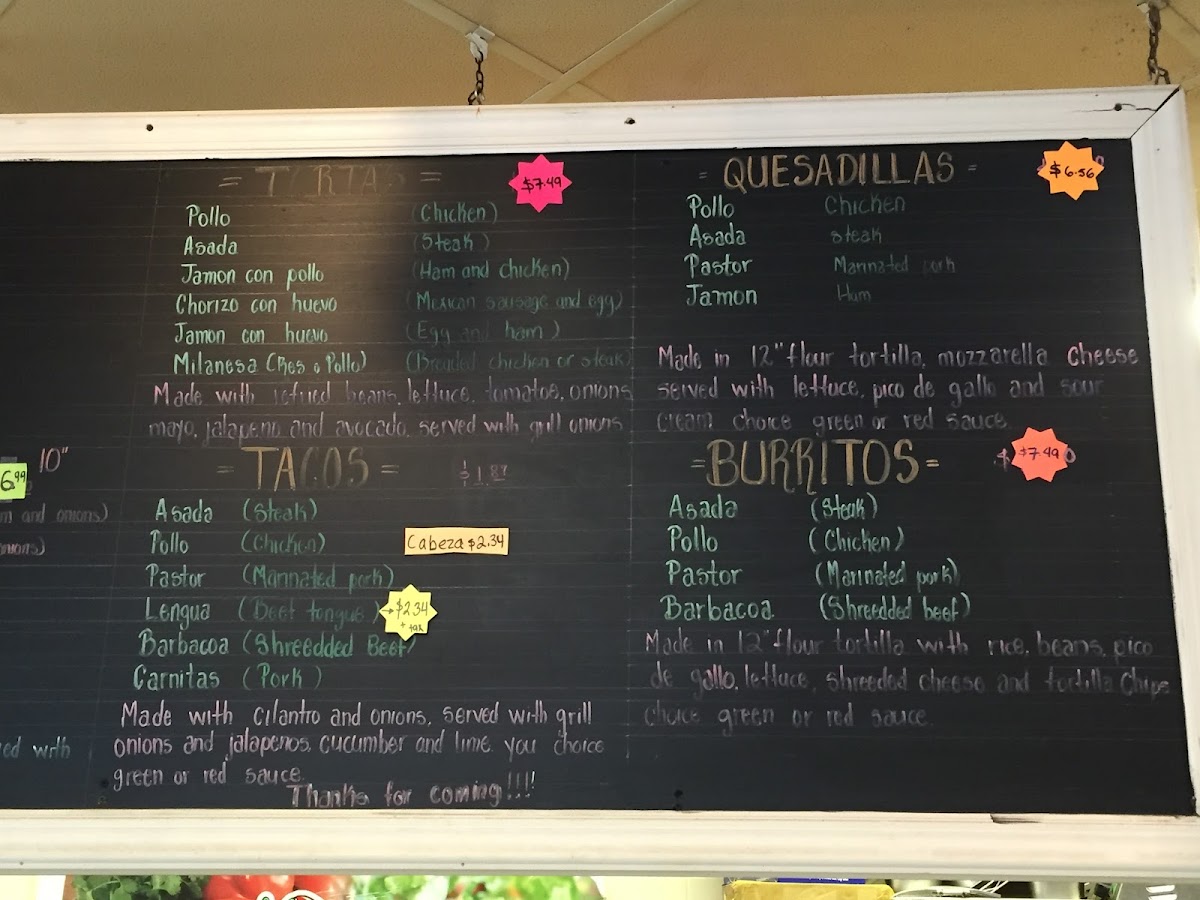 = TORTAS = $7.49
Pollo (Chicken)
Asada (Steak)
Jamon con pollo (Ham and chicken)
Chorizo con huevo (Mexican sausage and egg)
Jamon con huevo (Egg and ham)
Milanesa (Res o Pollo) (Breaded chicken or steak)
Made with refried beans, lettuce, tomatoe, onions
mayo, jalapeno and avocado, served with grill onions
= QUESADILLAS = $6.56
Pollo Chicken
Asada steak
Pastor Marinated pork
Jamon Ham
Made in 12" flour tortilla, mozzarella Cheese
served with lettuce, pico de gallo and sour
cream choice green or red sauce.
10"
6.99
m and onions)
onions)
ed with
= TACOS = $1.87
Asada (Steak)
Pollo (Chicken) Cabeza $2.34
Pastor (Marinated pork)
Lengua (Beef tongue) → $2.34
+ tax
Barbacoa (Shreedded Beef)
Carnitas (Pork)
Made with cilantro and onions, served with grill
onions and jalapenos, cucumber and lime. you choice
green or red sauce.
Thanks for coming!!!!
= BURRITOS = $7.49
Asada (Steak)
Pollo (Chicken)
Pastor (Marinated pork)
Barbacoa (Shreedded beef)
Made in 12" flour tortilla with rice, beans, pico
de gallo, lettuce, shreeded cheese and tortilla Chips
choice green or red sauce.